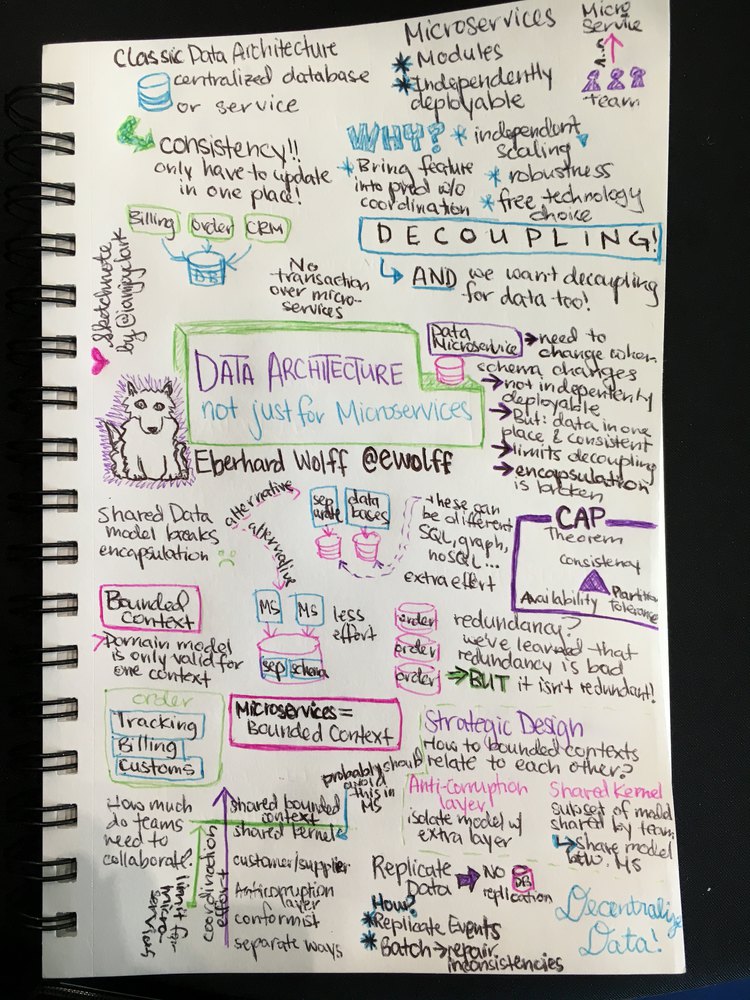 Classic Data Architecture
centralized database
or service
consistency!!
only have to update
in one place!
Billing order CRM
DB
No
transaction
over micro-
services
Microservices
* Modules
* Independently
deployable
Micro
Service
team
WHY?
* Bring feature
into prod w/o
coordination
* independent
scaling
* robustness
* free technology
choice
DECOUPLING!
AND we want decoupling
for data too!
Sketchnote
by @iamjpyclark
DATA ARCHITECTURE
not just for Microservices
Eberhard Wolff @ewolff
Data
Microservice
→ need to
change when
schema changes
→ not independently
deployable
→ But: data in one
place & consistent
→ limits decoupling
→ encapsulation
is broken
Shared Data
model breaks
encapsulation
alternative
alternative
separate
data
bases
these can
be different
SQL, graph,
noSQL...
extra effort
CAP
Theorem
consistency
Availability
Partition
Tolerance
MS MS
less
effort
sep schema
Bounded
Context
Domain model
is only valid for
one context
order
order
order
redundancy?
we've learned that
redundancy is bad
⇒ BUT it isn't redundant!
order
Tracking
Billing
Customs
Microservices =
Bounded Context
Strategic Design
How to bounded contexts
relate to each other?
Anti-corruption
layer
isolate model w/
extra layer
Shared Kernel
subset of model
shared by team
share model
btw. MS
How much
do teams
need to
collaborate?
limit for
micro-
services
coordination
effort
probably should
avoid
this in
MS
shared bounded
context
shared kernel
customer/supplier
Anticorruption
layer
conformist
separate ways
Replicate
Data → NO DB
replication
How?
* Replicate Events
* Batch → repair
inconsistencies
Decentralize
Data!